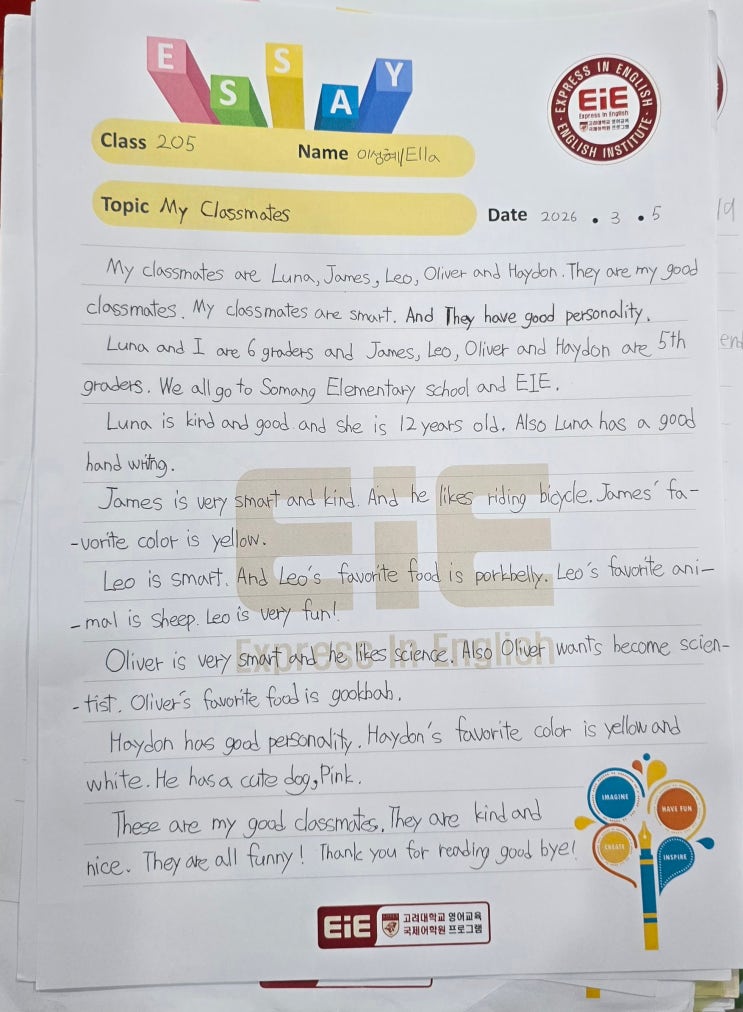 ESSAY
EXPRESS IN ENGLISH
EiE
Express in English
고려대학교 영어교육
국제어학원 프로그램
ENGLISH INSTITUTE
Class 205
Name 이성혜/Ella
Topic My Classmates
Date 2026 . 3 . 5
My classmates are Luna, James, Leo, Oliver and Haydon. They are my good
classmates. My classmates are smart. And They have good personality.
Luna and I are 6 graders and James, Leo, Oliver and Haydon are 5th
graders. We all go to Somang Elementary school and EIE.
Luna is kind and good and she is 12 years old. Also Luna has a good
hand writng.
James is very smart and kind. And he likes riding bicycle. James' fa-
-vorite color is yellow.
Leo is smart. And Leo's favorite food is porkbelly. Leo's favorite ani-
-mal is sheep. Leo is very fun!
Oliver is very smart and he likes science. Also Oliver wants become scien-
-tist. Oliver's favorite food is gookbab.
Haydon has good personality. Haydon's favorite color is yellow and
white. He has a cute dog, Pink.
These are my good classmates. They are kind and
nice. They are all funny! Thank you for reading good bye!
EiE
Express In English
IMAGINE
HAVE FUN
CREATE
INSPIRE
EiE
고려대학교 영어교육
국제어학원 프로그램
end